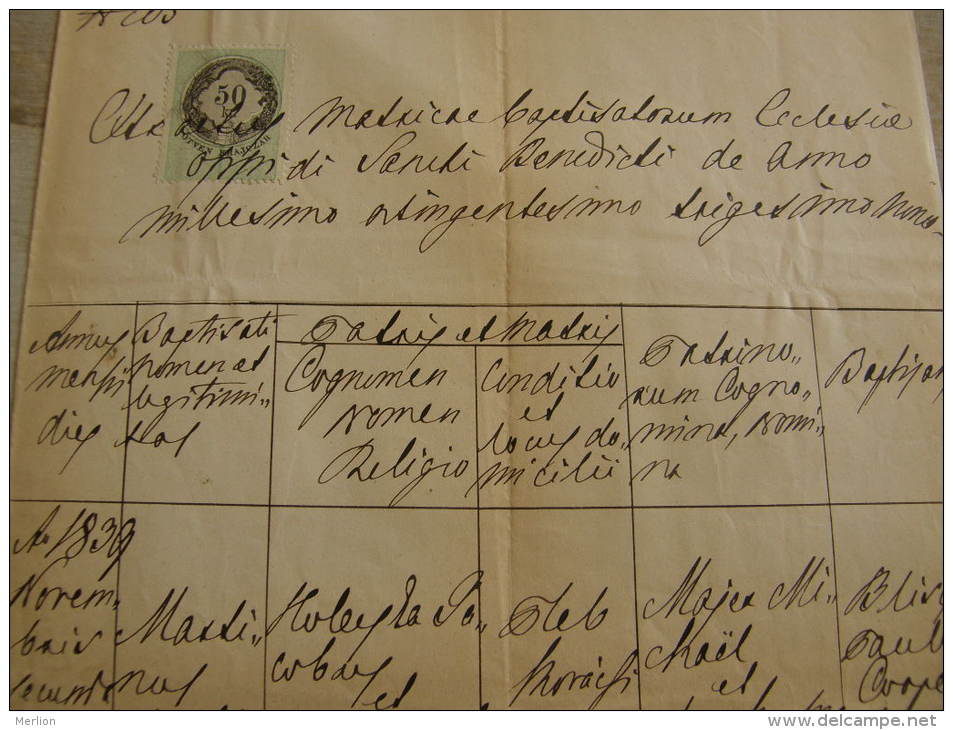 50
ÖTVEN KRAJCZÁR
Matricae Baptisatorum Ecclesiae
oppidi Sancti Benedicti de Anno
millesimo octingentesimo trigesimo nono
Annus
mensis
dies
Baptisati
nomen et
legitimi-
tas
Patris et Matris
Cognomen
Nomen
Religio
Conditio
et
locus do-
micilii
Patrino-
rum Cogno-
mina, Nomi-
na
Ao 1839
Novem-
bris
secunda
Marti-
nus
Holeyka Ja-
cobus
et
Pleb
Majer Mi-
chaël
et
Paul
Coope
Merlion
delcampe.net